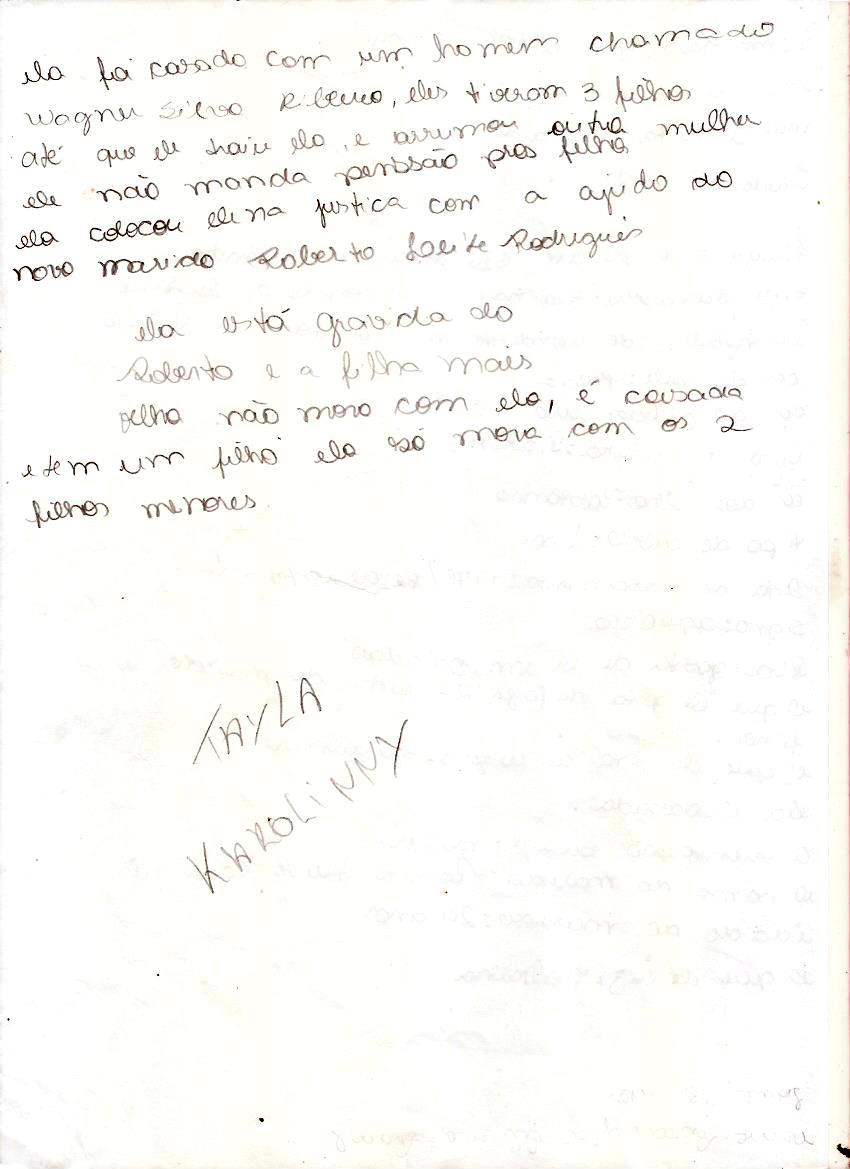 ela foi casada com um homem chamado
Wagner Silva Ribeiro, eles tiveram 3 filhos
até que ele traiu ela, e arrumou outra mulher
ele não manda penssão pros filhos
ela colocou ele na justica com a ajuda do
novo marido Roberto Leite Rodrigues
ela está gravida do
Roberto e a filha mais
velha não mora com ela, é casada
e tem um filho ela só mora com os 2
filhos menores.
TAYLA
KAROLINNY